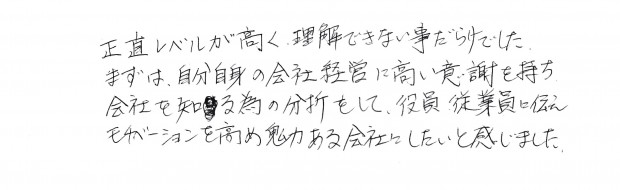 正直レベルが高く、理解できない事だらけでした。
まずは、自分自身の会社経営に高い意謝を持ち
会社を知る為の分析をして、役員従業員に伝え
モチベーションを高め魅力ある会社にしたいと感じました。